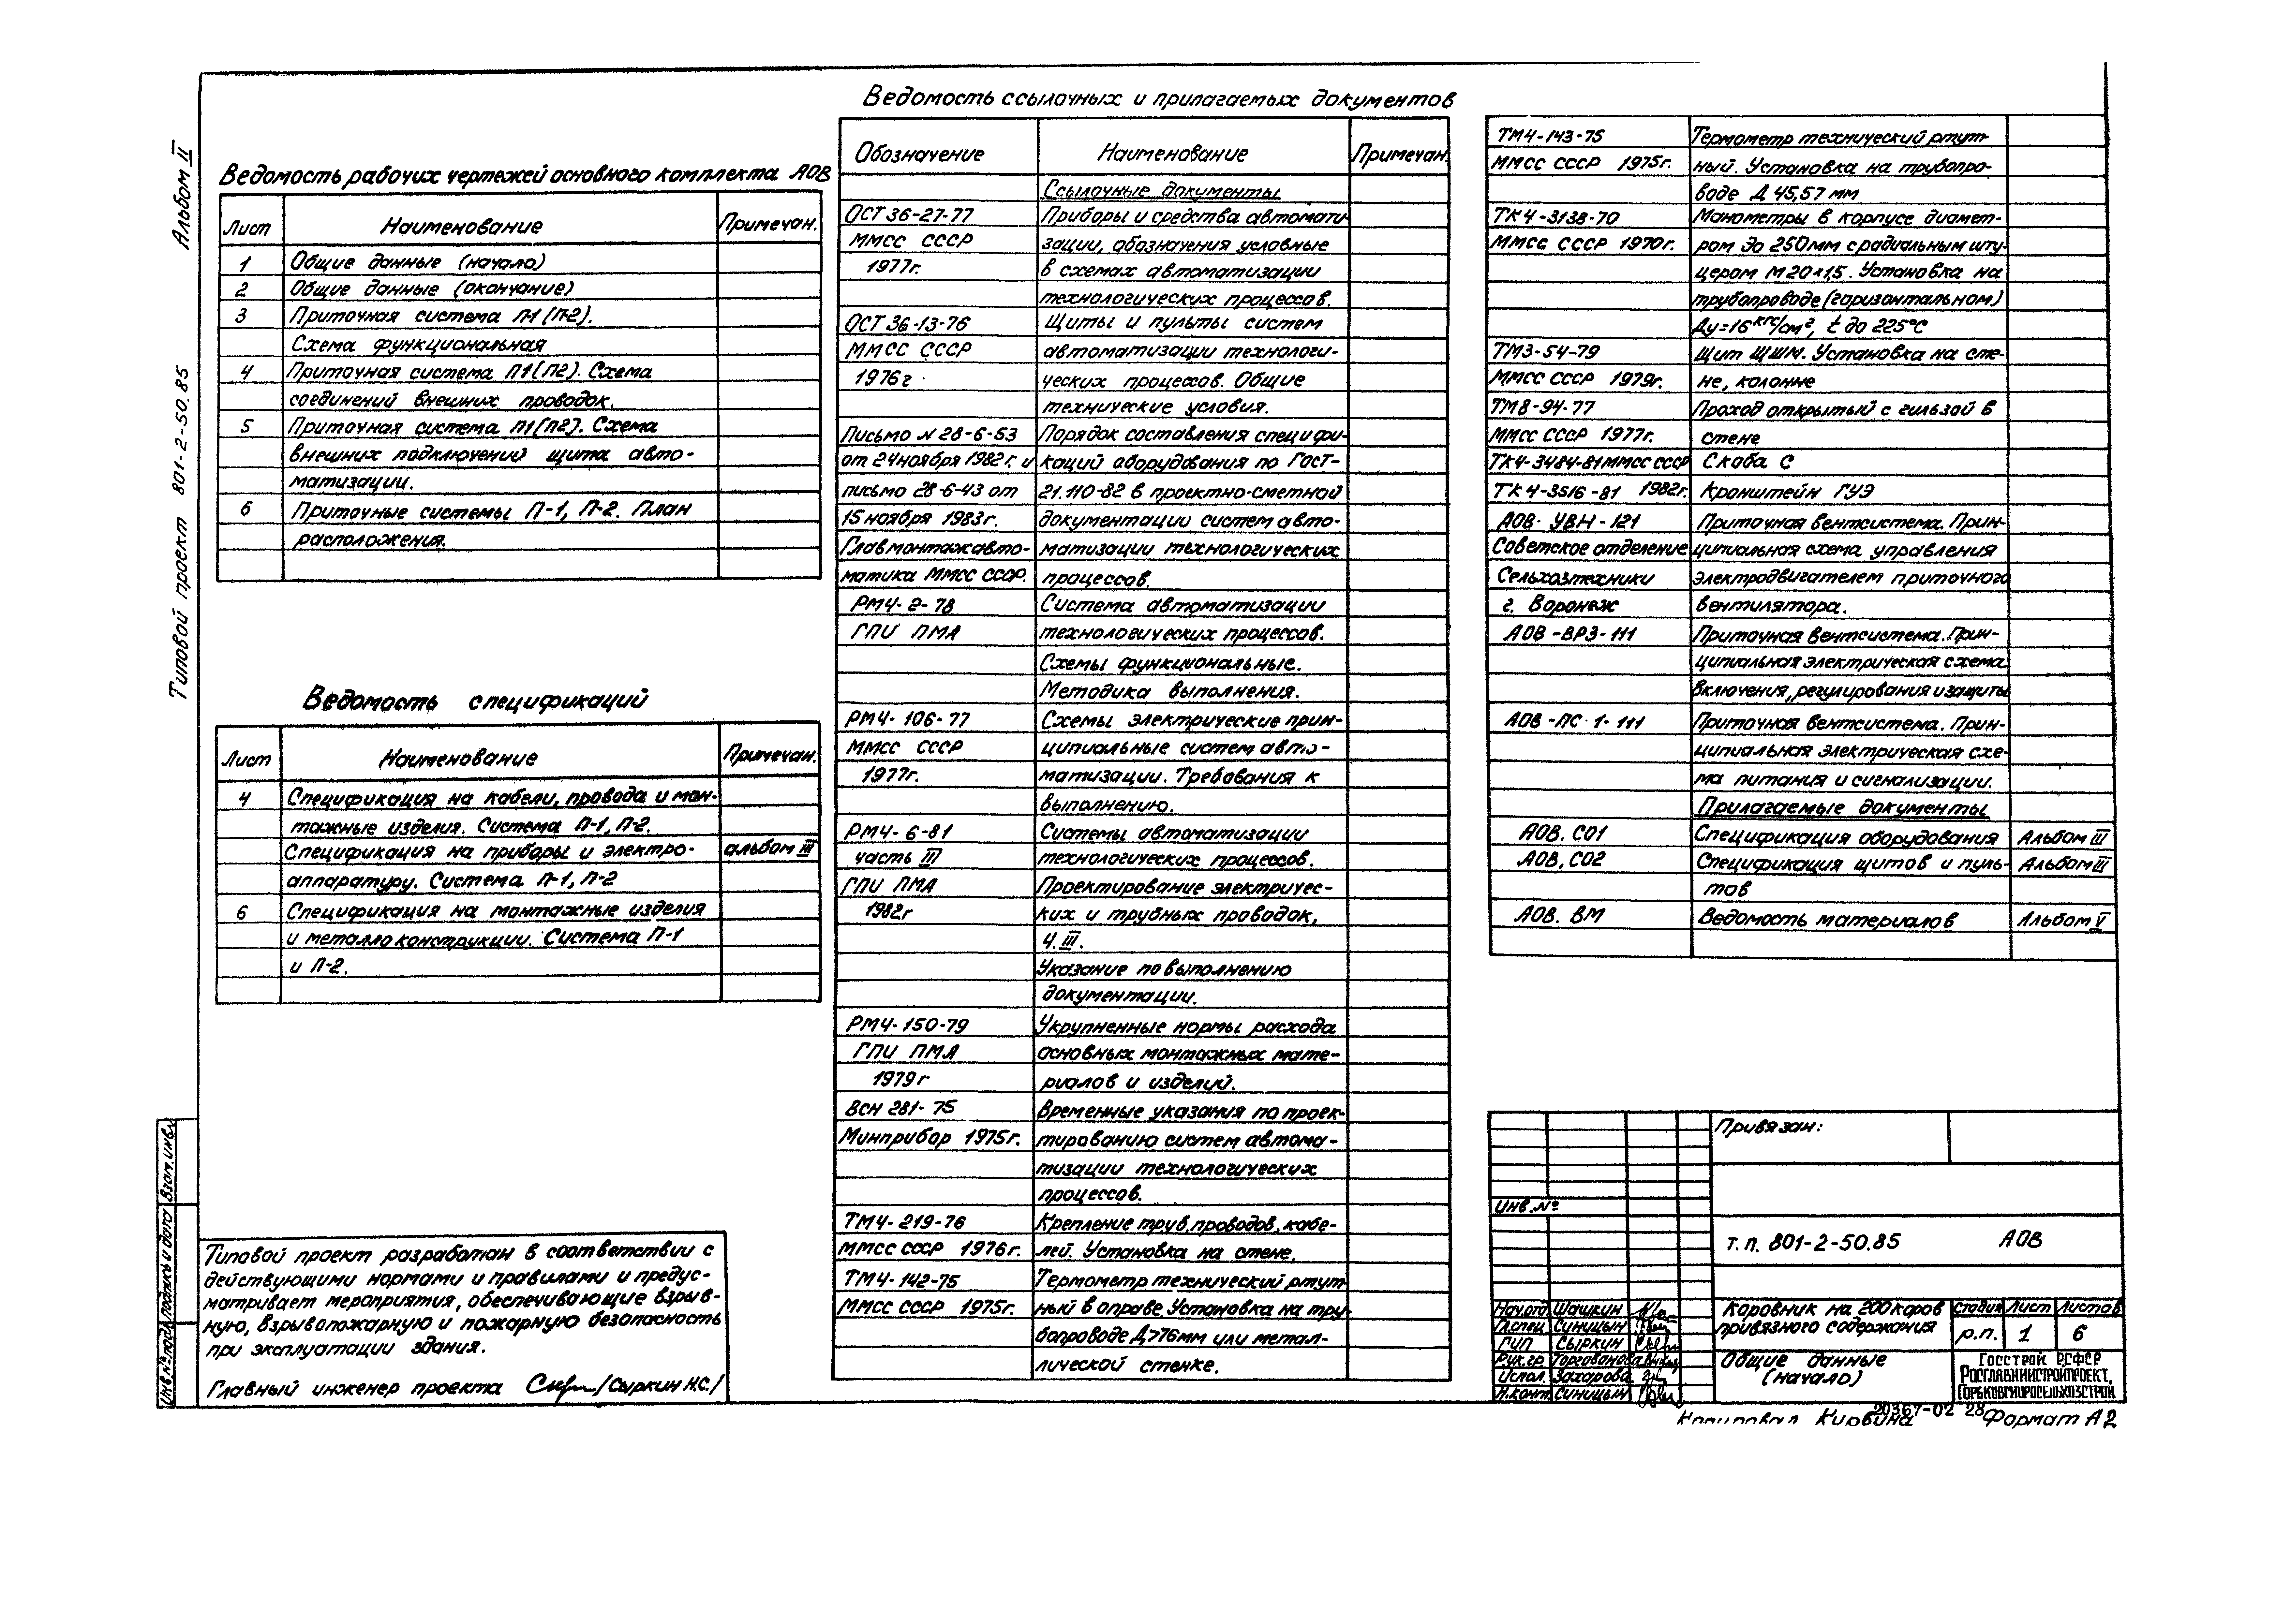 Альбом II
Типовой проект 801-2-50.85
Ведомость рабочих чертежей основного комплекта АОВ
Лист Наименование Примечан.
1 Общие данные (начало)
2 Общие данные (окончание)
3 Приточная система П-1 (П-2).
Схема функциональная
4 Приточная система П1 (П2). Схема
соединений внешних проводок.
5 Приточная система П1 (П2). Схема
внешних подключений щита авто-
матизации.
6 Приточные системы П-1, П-2. План
расположения.
Ведомость спецификаций
Лист Наименование Примечан.
4 Спецификация на кабели, провода и мон-
тажные изделия. Система П-1, П-2.
Спецификация на приборы и электро- альбом III
аппаратуру. Система П-1, П-2
6 Спецификация на монтажные изделия
и металлоконструкции. Система П-1
и П-2.
Типовой проект разработан в соответствии с
действующими нормами и правилами и предус-
матривает мероприятия, обеспечивающие взрыв-
ную, взрывопожарную и пожарную безопасность
при эксплуатации здания.
Главный инженер проекта /Сыркин Н.С./
Взам. инв.
Подпись и дата
Инв. № подл.
Ведомость ссылочных и прилагаемых документов
Обозначение Наименование Примечан.
Ссылочные документы
ОСТ 36-27-77 Приборы и средства автомати-
ММСС СССР зации, обозначения условные
1977г. в схемах автоматизации
технологических процессов.
ОСТ 36-13-76 Щиты и пульты систем
ММСС СССР автоматизации технологи-
1976г. ческих процессов. Общие
технические условия.
Письмо № 28-6-53 Порядок составления специфи-
от 24 ноября 1982г. и каций оборудования по ГОСТ-
письмо 28-6-43 от 21.110-82 в проектно-сметной
15 ноября 1983г. документации систем авто-
Главмонтажавто- матизации технологических
матика ММСС СССР. процессов.
РМ4-2-78 Система автоматизации
ГПИ ПМА технологических процессов.
Схемы функциональные.
Методика выполнения.
РМ4-106-77 Схемы электрические прин-
ММСС СССР ципиальные систем авто-
1977г. матизации. Требования к
выполнению.
РМ4-6-81 Системы автоматизации
часть III технологических процессов.
ГПИ ПМА Проектирование электричес-
1982г ких и трубных проводок,
ч. III.
Указание по выполнению
документации.
РМ4-150-79 Укрупненные нормы расхода
ГПИ ПМА основных монтажных мате-
1979г риалов и изделий.
ВСН 281-75 Временные указания по проек-
Минприбор 1975г. тированию систем автома-
тизации технологических
процессов.
ТМ4-219-76 Крепление труб, проводов, кабе-
ММСС СССР 1976г. лей. Установка на стене.
ТМ4-142-75 Термометр технический ртут-
ММСС СССР 1975г. ный в оправе. Установка на тру-
бопроводе Д>76мм или метал-
лической стенке.
ТМ4-143-75 Термометр технический ртут-
ММСС СССР 1975г. ный. Установка на трубопро-
воде Д 45,57 мм
ТК4-3138-70 Манометры в корпусе диамет-
ММСС СССР 1970г. ром до 250мм с радиальным шту-
цером М20×1,5. Установка на
трубопроводе (горизонтальном)
Ду=16 кгс/см², t до 225°С
ТМ3-54-79 Щит ЩШМ. Установка на сте-
ММСС СССР 1979г. не, колонне
ТМ8-94-77 Проход открытый с гильзой в
ММСС СССР 1977г. стене
ТК4-3484-81 ММСС СССР Скоба С
ТК4-3516-81 1982г. Кронштейн ГУЭ
АОВ-УВН-121 Приточная вентсистема. Прин-
Советское отделение ципиальная схема управления
Сельхозтехники электродвигателем приточного
г. Воронеж вентилятора.
АОВ-ВРЗ-111 Приточная вентсистема. Прин-
ципиальная электрическая схема
включения, регулирования и защиты
АОВ-ПС-1-111 Приточная вентсистема. Прин-
ципиальная электрическая схе-
ма питания и сигнализации.
Прилагаемые документы
АОВ.СО1 Спецификация оборудования Альбом III
АОВ.СО2 Спецификация щитов и пуль- Альбом III
тов
АОВ.ВМ Ведомость материалов Альбом V
Привязан:
Инв. №
т.п. 801-2-50.85 АОВ
Нач.отд. Шашкин
Гл.спец. Синицын
ГИП Сыркин
Рук.гр. Торгованова
Испол. Захарова
Н.конт. Синицын
Коровник на 200 коров
привязного содержания
Стадия Лист Листов
р.п. 1 6
Общие данные
(начало)
Госстрой РСФСР
Росглавниистройпроект,
Горьковгипросельхозстрой
Копировал Кирвина 20367-02 28 Формат А2